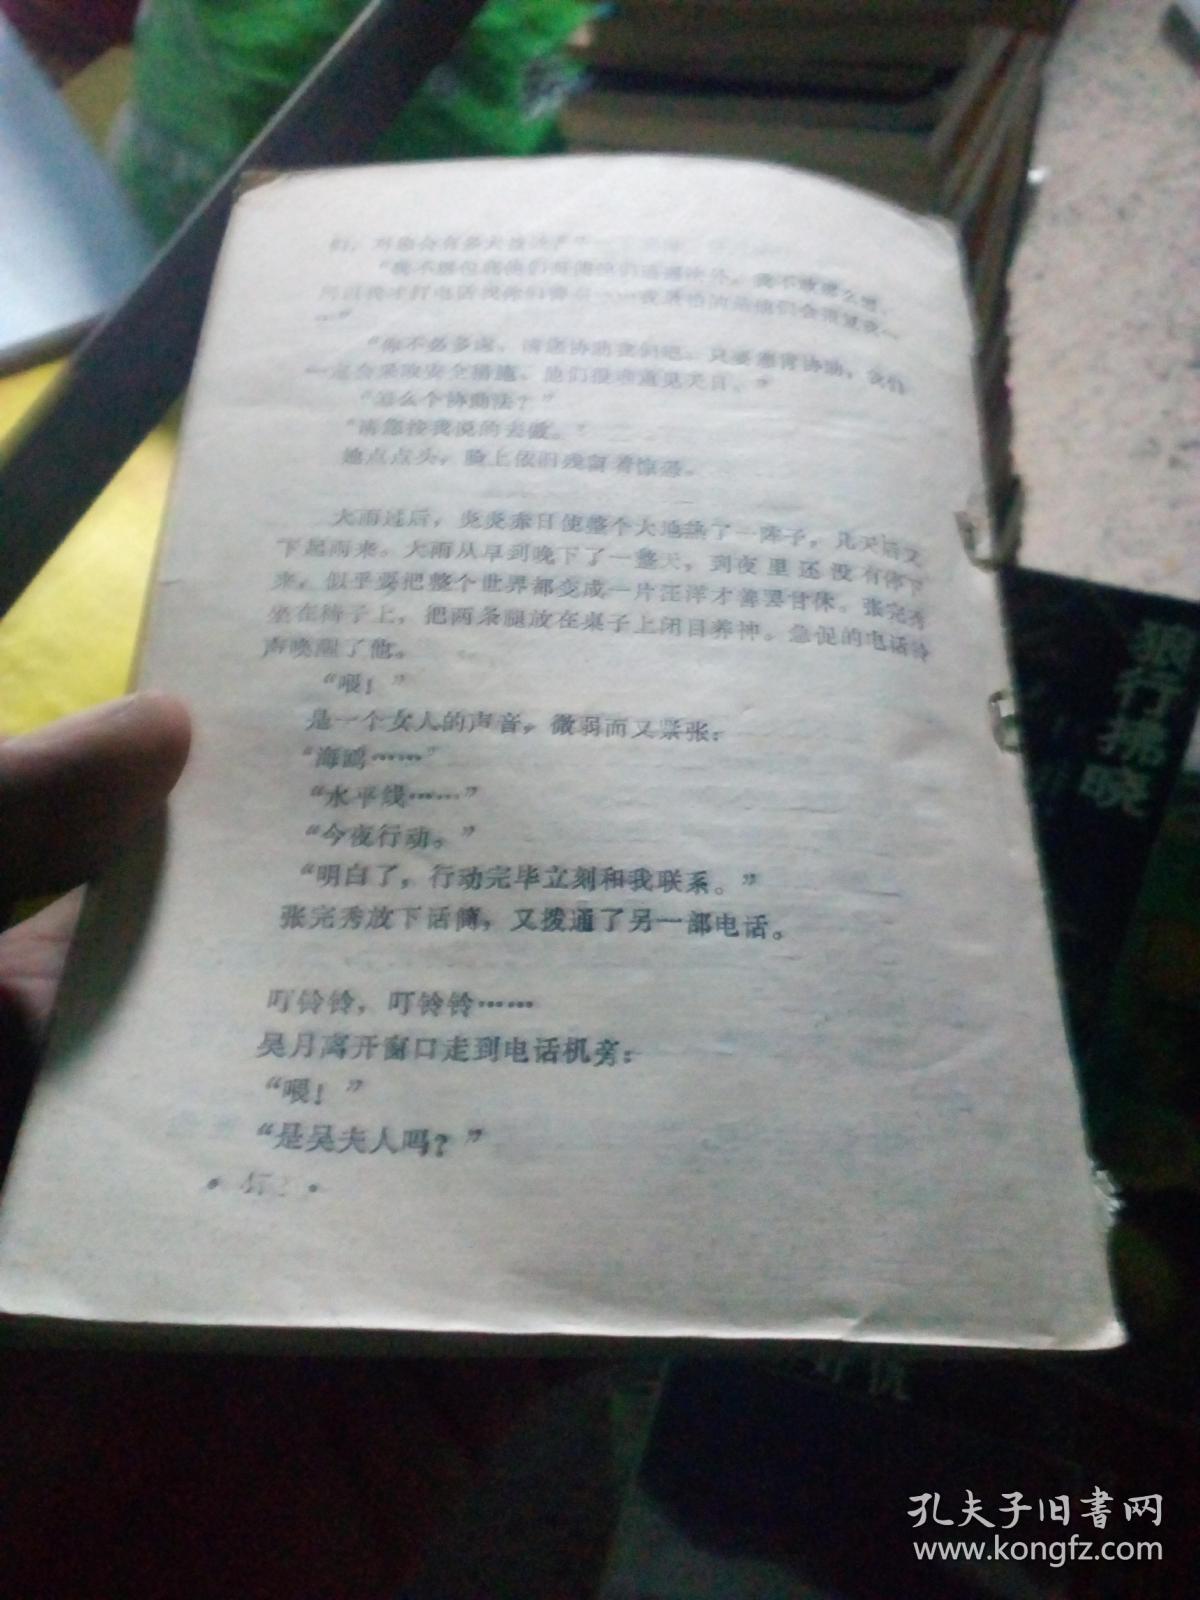 “你不必多虑，请您协助我们吧。只要您肯协助，我们
一定会采取安全措施。他们很难重见天日。”
“怎么个协助法？”
“请您按我说的去做。”
她点点头，脸上依旧残留着惊恐。
大雨过后，炎炎赤日使整个大地热了一阵子，几天后又
下起雨来。大雨从早到晚下了一整天，到夜里还没有停下
来，似乎要把整个世界都变成一片汪洋才善罢甘休。张完秀
坐在椅子上，把两条腿放在桌子上闭目养神。急促的电话铃
声唤醒了他。
“喂！”
是一个女人的声音，微弱而又紧张：
“海鸥……”
“水平线……”
“今夜行动。”
“明白了，行动完毕立刻和我联系。”
张完秀放下话筒，又拨通了另一部电话。
叮铃铃，叮铃铃……
吴月离开窗口走到电话机旁：
“喂！”
“是吴夫人吗？”
狼行拂晓
孔夫子旧书网
www.kongfz.com